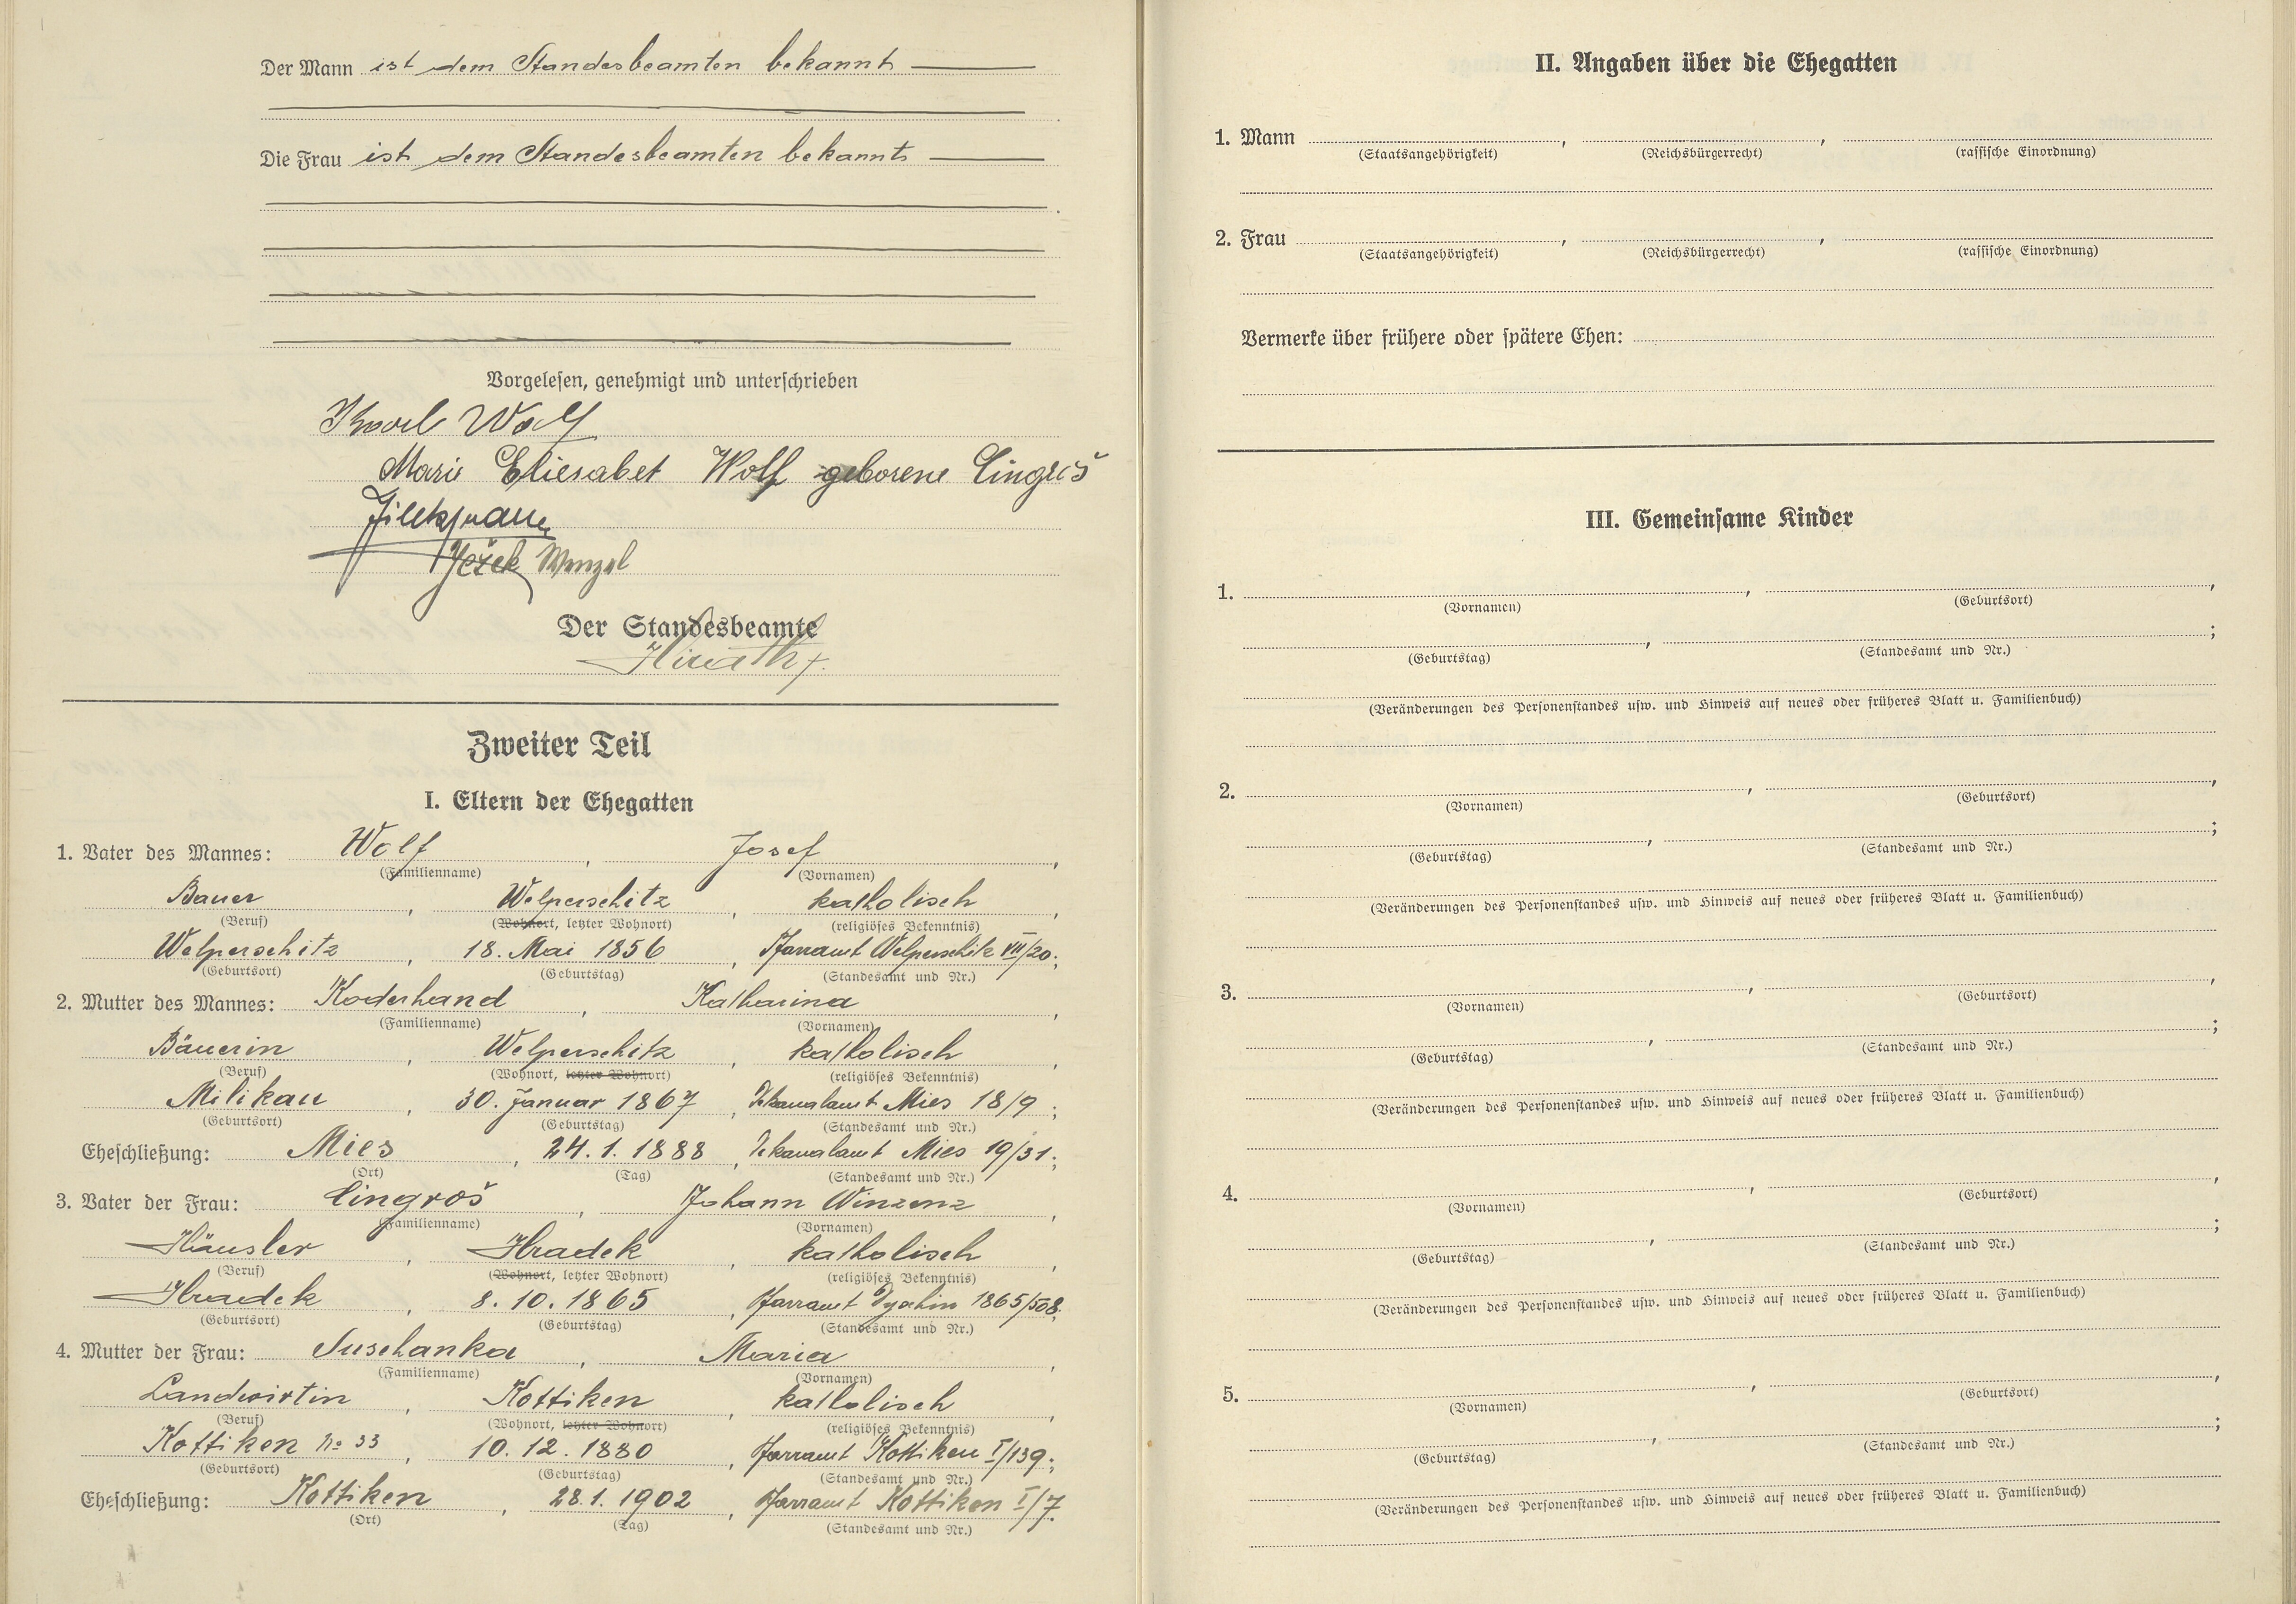 Der Mann ist dem Standesbeamten bekannt
Die Frau ist dem Standesbeamten bekannt
Vorgelesen, genehmigt und unterschrieben
Karl Wolf
Marie Eliesabet Wolf geborene Cingroš
Ježek Wenzel
Der Standesbeamte
Zweiter Teil
I. Eltern der Ehegatten
1. Vater des Mannes: Wolf, Josef,
(Familienname) (Vornamen)
Bauer, Welperschitz, katholisch,
(Beruf) (Wohnort, letzter Wohnort) (religiöses Bekenntnis)
Welperschitz, 18. Mai 1856, Pfarramt Welperschitz VII/20;
(Geburtsort) (Geburtstag) (Standesamt und Nr.)
2. Mutter des Mannes: Koderhand, Katharina,
(Familienname) (Vornamen)
Bäuerin, Welperschitz, katholisch,
(Beruf) (Wohnort, letzter Wohnort) (religiöses Bekenntnis)
Milikau, 30. Januar 1867, Dekanalamt Mies 18/9;
(Geburtsort) (Geburtstag) (Standesamt und Nr.)
Eheschließung: Mies, 24.1.1888, Dekanalamt Mies 19/31;
(Ort) (Tag) (Standesamt und Nr.)
3. Vater der Frau: Cingroš, Johann Winzenz,
(Familienname) (Vornamen)
Häusler, Hradek, katholisch,
(Beruf) (Wohnort, letzter Wohnort) (religiöses Bekenntnis)
Hradek, 8.10.1865, Pfarramt 1865/508;
(Geburtsort) (Geburtstag) (Standesamt und Nr.)
4. Mutter der Frau: Suschanka, Maria,
(Familienname) (Vornamen)
Landwirtin, Kottiken, katholisch,
(Beruf) (Wohnort, letzter Wohnort) (religiöses Bekenntnis)
Kottiken No 33, 10.12.1880, Pfarramt Kottiken I/139;
(Geburtsort) (Geburtstag) (Standesamt und Nr.)
Eheschließung: Kottiken, 28.1.1902, Pfarramt Kottiken I/7.
(Ort) (Tag) (Standesamt und Nr.)
II. Angaben über die Ehegatten
1. Mann , ,
(Staatsangehörigkeit) (Reichsbürgerrecht) (rassische Einordnung)
2. Frau , ,
(Staatsangehörigkeit) (Reichsbürgerrecht) (rassische Einordnung)
Vermerke über frühere oder spätere Ehen:
III. Gemeinsame Kinder
1. , ,
(Vornamen) (Geburtsort)
, ;
(Geburtstag) (Standesamt und Nr.)
(Veränderungen des Personenstandes usw. und Hinweis auf neues oder früheres Blatt u. Familienbuch)
2. , ,
(Vornamen) (Geburtsort)
, ;
(Geburtstag) (Standesamt und Nr.)
(Veränderungen des Personenstandes usw. und Hinweis auf neues oder früheres Blatt u. Familienbuch)
3. , ,
(Vornamen) (Geburtsort)
, ;
(Geburtstag) (Standesamt und Nr.)
(Veränderungen des Personenstandes usw. und Hinweis auf neues oder früheres Blatt u. Familienbuch)
4. , ,
(Vornamen) (Geburtsort)
, ;
(Geburtstag) (Standesamt und Nr.)
(Veränderungen des Personenstandes usw. und Hinweis auf neues oder früheres Blatt u. Familienbuch)
5. , ,
(Vornamen) (Geburtsort)
, ;
(Geburtstag) (Standesamt und Nr.)
(Veränderungen des Personenstandes usw. und Hinweis auf neues oder früheres Blatt u. Familienbuch)